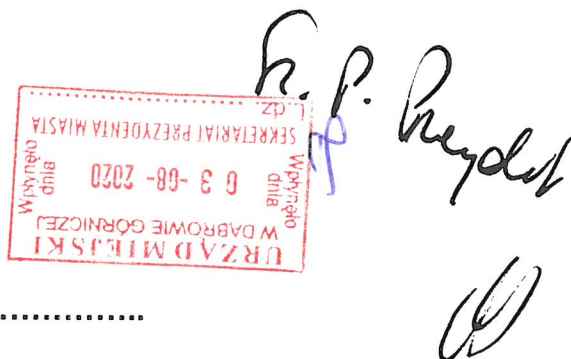 P. Prezydent
URZĄD MIEJSKI
W DĄBROWIE GÓRNICZEJ
Wpłynęło
dnia
0 3 -08- 2020
Wpłynęło
dnia
SEKRETARIAT PREZYDENTA MIASTA
L.dz.